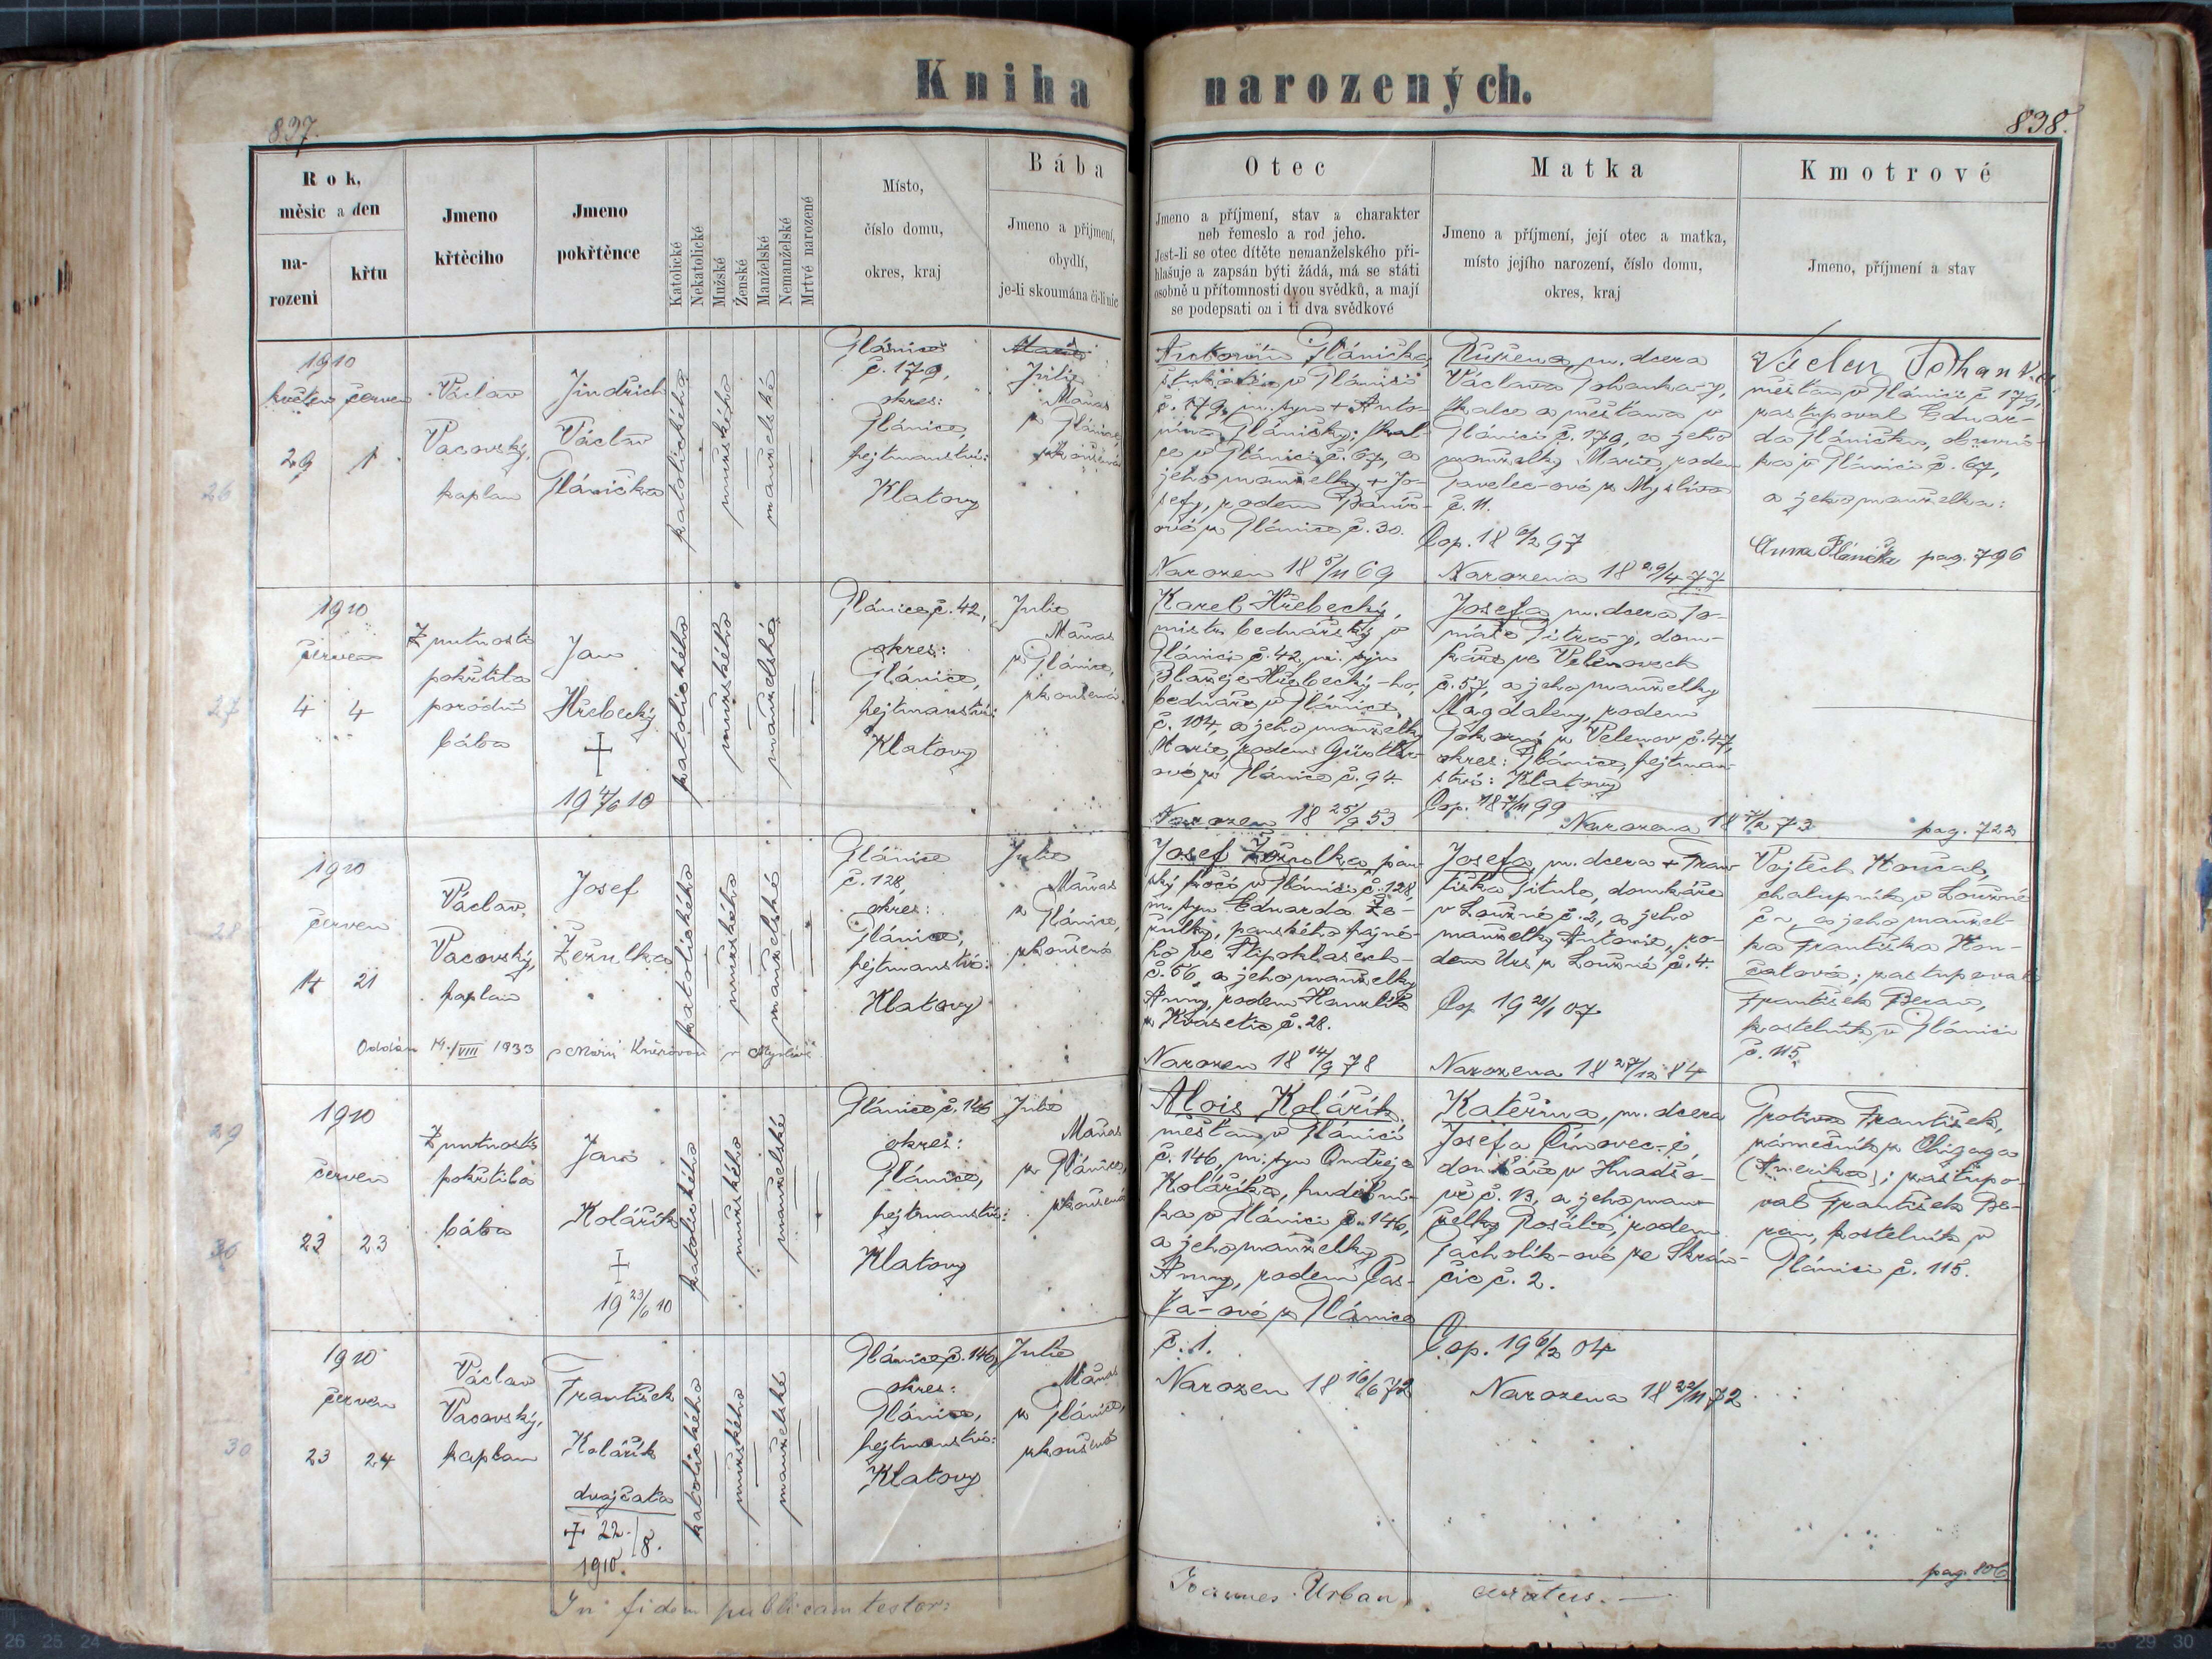 Kniha narozených.
837.
838.
Rok,
měsíc a den
na-
rozeni
křtu
Jmeno
křtěcího
Jmeno
pokřtěnce
Katolické
Nekatolické
Mužské
Ženské
Manželské
Nemanželské
Mrtvé narozené
Místo,
číslo domu,
okres, kraj
Bába
Jmeno a přijmení,
obydlí,
je-li skoumána či-li nic
Otec
Jmeno a příjmení, stav a charakter
neb řemeslo a rod jeho.
Jest-li se otec dítěte nemanželského při-
hlašuje a zapsán býti žádá, má se státi
osobně u přítomnosti dvou svědků, a mají
se podepsati on i ti dva svědkové
Matka
Jmeno a příjmení, její otec a matka,
místo jejího narození, číslo domu,
okres, kraj
Kmotrové
Jmeno, příjmení a stav
26
1910
květen červen
29 1
Václav
Vacovský,
kaplan
Jindřich
Václav
Plánička
katolického
mužského
manželské
Plánice
č. 179,
okres:
Plánice,
hejtmanství:
Klatovy
Marie
Julie
Maňas
z Plánice,
zkoušená
Antonín Plánička,
v Plánici
č. 179, m. syn + Anto-
nína Pláničky, tkal-
ce v Plánici č. 67, a
jeho manželky + Jo-
sefy, rodem
z Plánice č. 30.
Narozen 18 5/11 69
Růžena, m. dcera
Václava Pohanka-y,
tkalce a měšťana v
Plánici č. 179, a jeho
manželky Marie, rodem
Pavelec-ové z Myslíva
č. 11.
Cop. 18 6/2 97
Narozena 18 29/4 77
Václav Pohanka
měšťan v Plánici č 179,
zastupoval Eduar-
da Pláničku, obuvní-
ka v Plánici č. 67,
a jeho manželka:
Anna Plánička pag. 796
27
1910
červen
4 4
Z nutnosti
pokřtila
porodní
bába
Jan
Hřebecký
+
19 4/6 10
katolického
mužského
manželské
Plánice č. 42,
okres:
Plánice,
hejtmanství:
Klatovy
Julie
Maňas
z Plánice,
zkoušená
Karel Hřebecký,
mistr bednářský v
Plánici č. 42, m. syn
Blažeje Hřebecký-ho,
bednáře v Plánici
č. 104, a jeho manželky
Marie, rodem
ové z Plánice č. 94.
Narozen 18 25/9 53
Josefa, m. dcera To-
máše, dom-
káře ve Velenovech
č. 57, a jeho manželky
Magdaleny, rodem
Pokorný z Velenov č. 47,
okres: Plánice, hejtman-
ství: Klatovy
Cop. 18 7/11 99
Narozena 18 7/2 73
pag. 722
28
1910
červen
14 21
Václav
Vacovský,
kaplan
Josef
Žežulka
katolického
mužského
manželské
Plánice
č. 128,
okres:
Plánice,
hejtmanství:
Klatovy
Julie
Maňas
z Plánice,
zkoušená
Oddán 14./VIII 1933 s Marií v Myslívě
Josef Žežulka, pan-
ský kočí v Plánici č. 128,
m. syn Eduarda Že-
žulky, panského hajné-
ho ve Štipoklasech
č. 56, a jeho manželky
Anny, rodem Hanzlík
z Kvásetic č. 28.
Narozen 18 14/9 78
Josefa, m. dcera + Fran-
tiška Pitule, domkáře
v Loužné č. 2, a jeho
manželky Antonie, ro-
dem Urs z Loužné č. 4.
Cop 19 21/1 07
Narozena 18 27/12 84
Vojtěch Končal,
chalupník v Loužné
a jeho manžel-
ka Františka Kon-
čalová; zastupoval
František Beran,
kostelník v Plánici
č. 115
29
1910
červen
23 23
Z nutnosti
pokřtila
bába
Jan
Kolářík
+
19 23/6 10
katolického
mužského
manželské
Plánice č. 146
okres:
Plánice,
hejtmanství:
Klatovy
Julie
Maňas
z Plánice,
zkoušená
Alois Kolářík,
měšťan v Plánici
č. 146, m. syn Ondřeje
Koláříka, hudební-
ka v Plánici č. 146,
a jeho manželky
Anny, rodem Čás-
ka-ové z Plánice
č. 1.
Narozen 18 16/6 72
Kateřina, m. dcera
Josefa Cínovec-e,
domkáře v Hnačo-
vě č. 13, a jeho man-
želky Rosalie, rodem
Pacholík-ové ze Skrán-
čic č. 2.
Cop. 19 6/2 04
Narozena 18 22/11 72
Protiva František,
řezníček z Chigaga
(Amerika); zastupo-
val František Be-
ran, kostelník v
Plánici č. 115.
30
30
1910
červen
23 24
Václav
Vacovský,
kaplan
František
Kolářík
dvojčata
+ 22./8.
1910.
katolického
mužského
manželské
Plánice č. 146,
okres:
Plánice,
hejtmanství:
Klatovy
Julie
Maňas
z Plánice,
zkoušená
pag. 806
In fidem publicam testor:
Joannes Urban curatus.